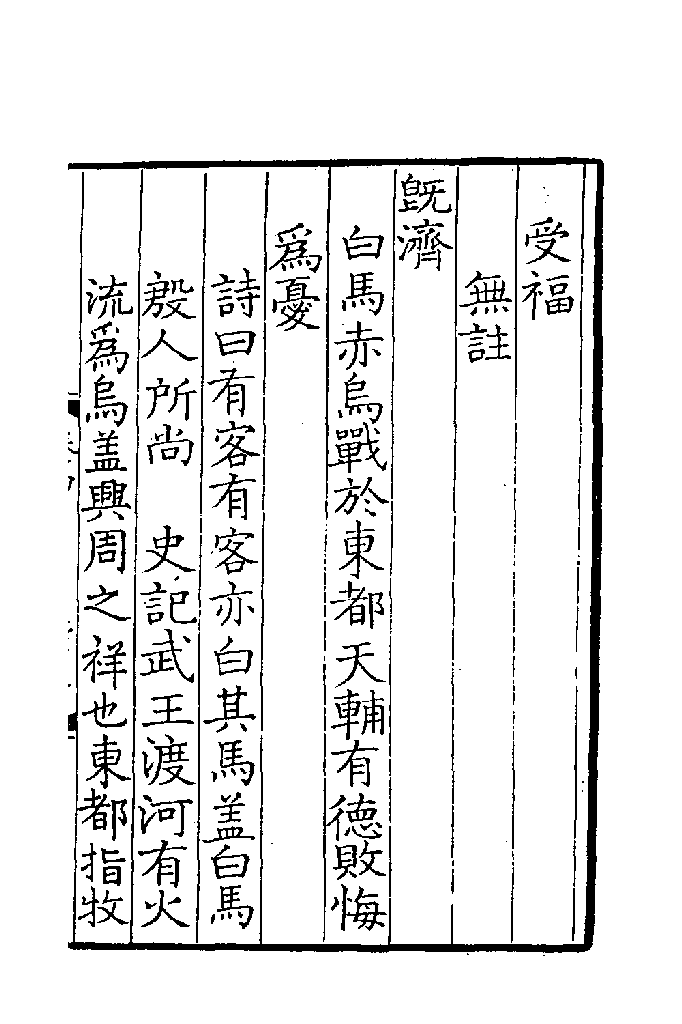 受福
無註
旣濟
白馬赤烏戰於東都天輔有德敗悔
爲憂
詩曰有客有客亦白其馬盖白馬
殷人所尚　史記武王渡河有火
流爲烏盖興周之祥也東都指牧